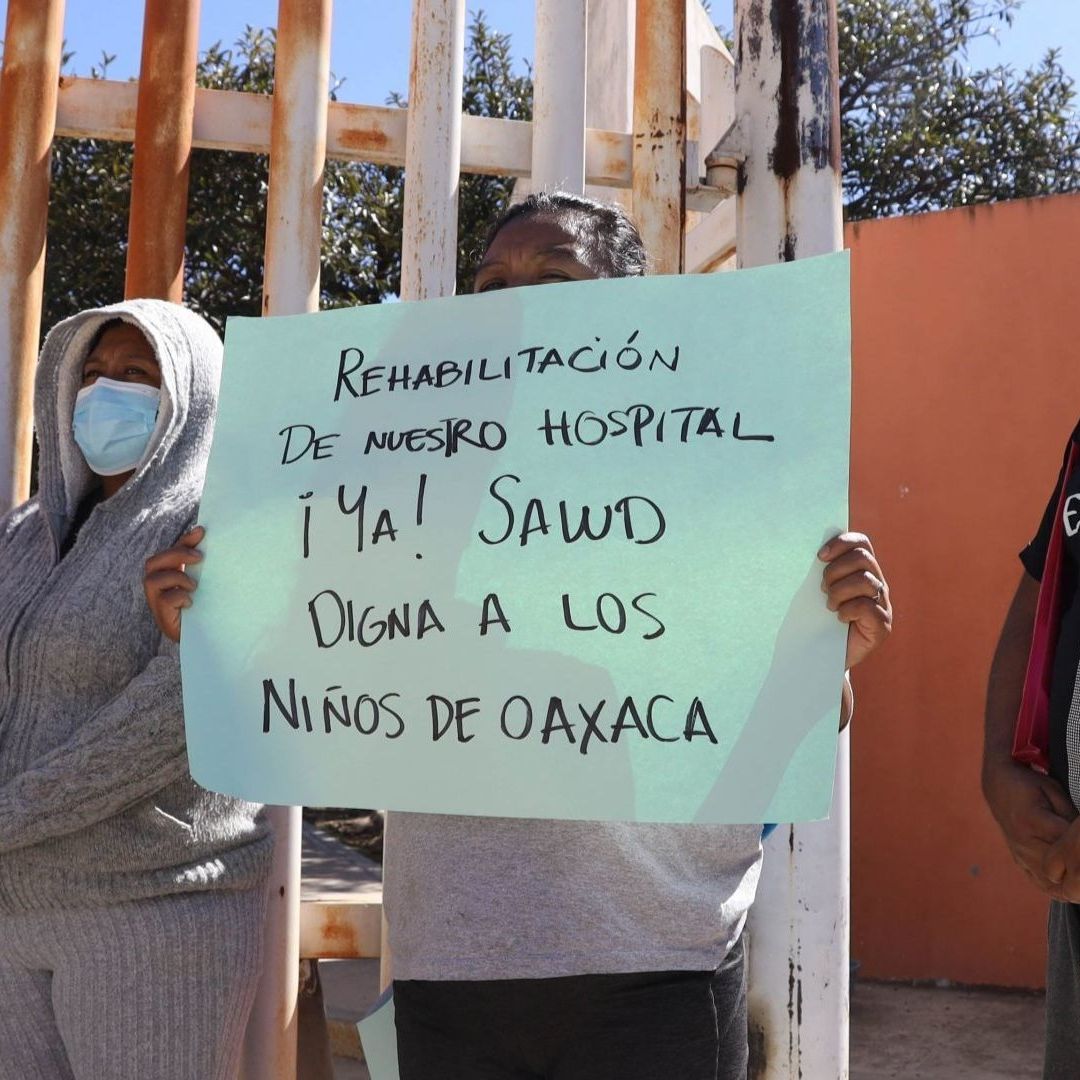 REHABILITACIÓN
DE NUESTRO HOSPITAL
¡YA! SALUD
DIGNA A LOS
NIÑOS DE OAXACA